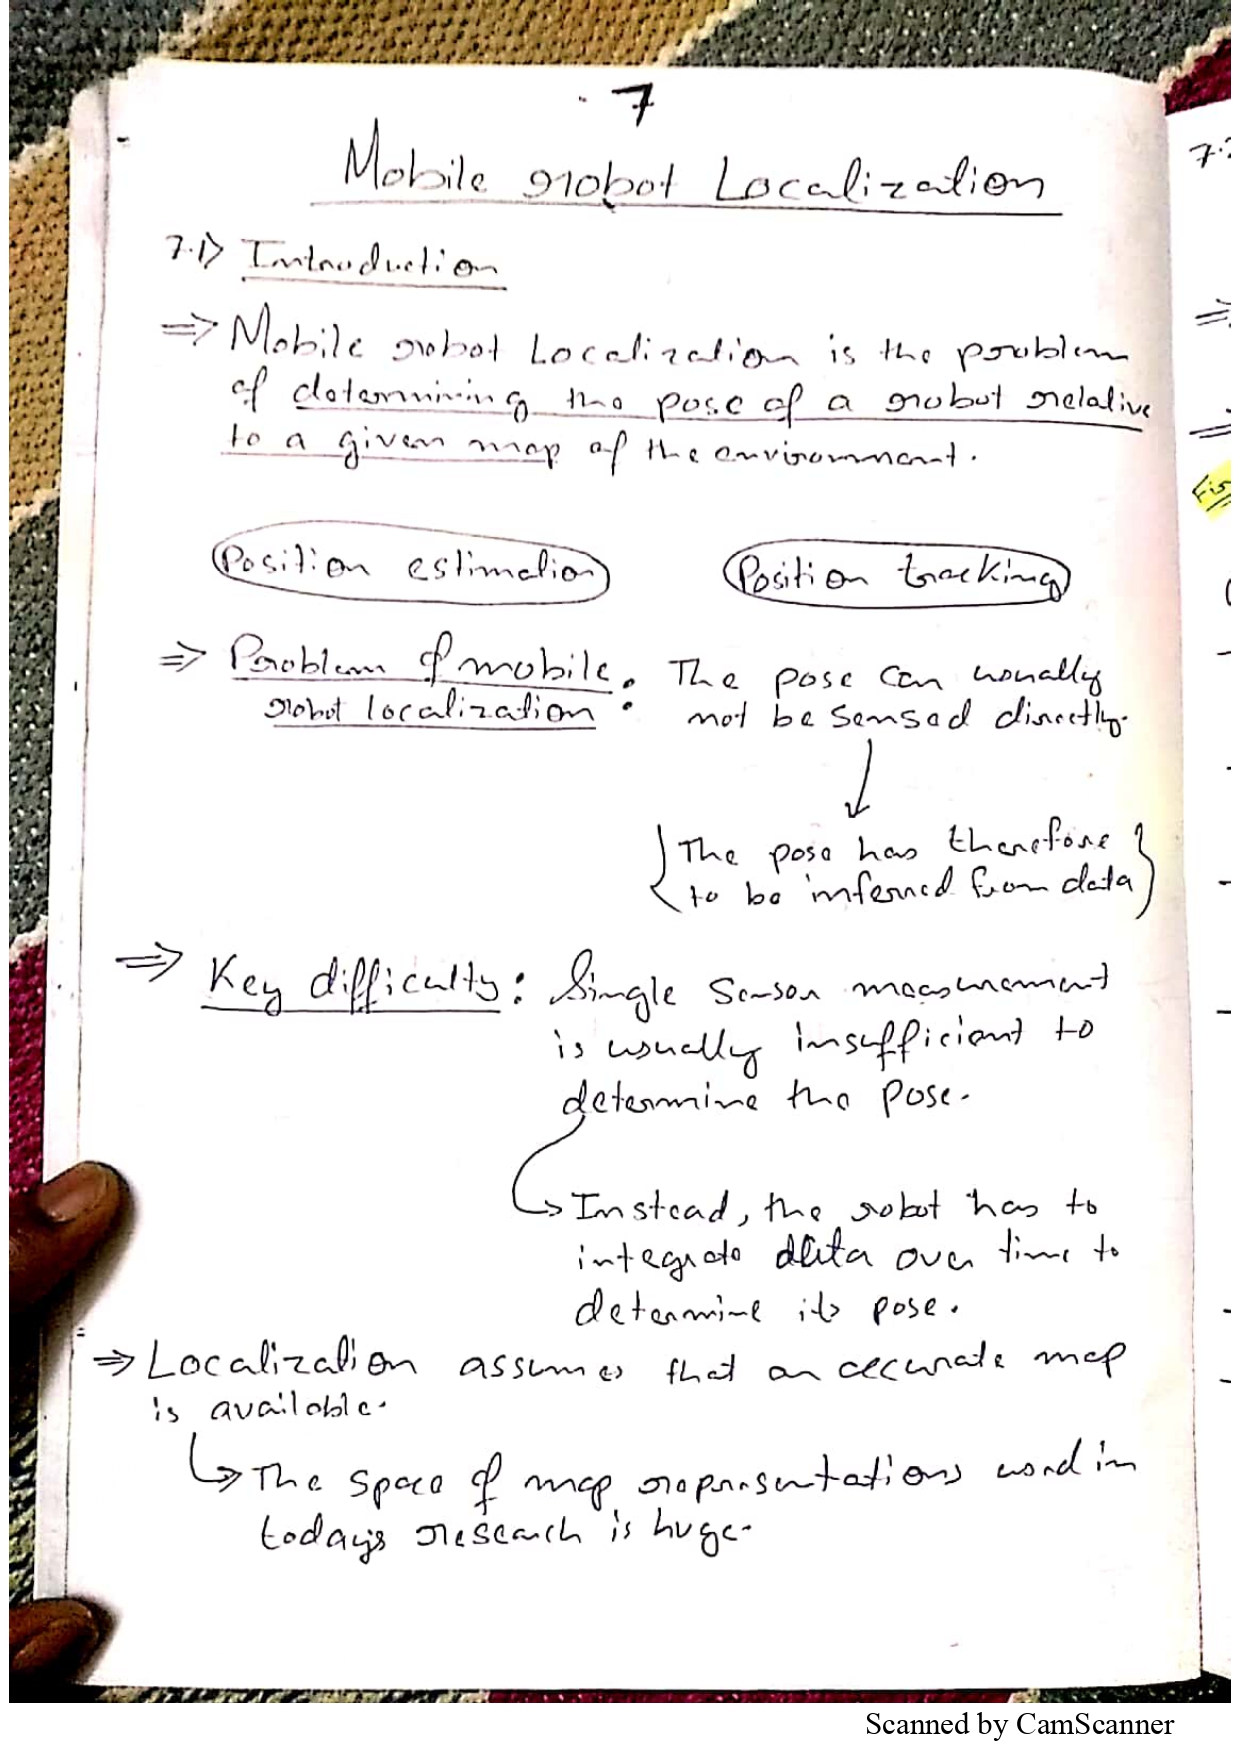 7
Mobile robot Localization
7.1> Introduction
⇒ Mobile robot Localization is the problem
of determining the pose of a robot relative
to a given map of the environment.
Position estimation Position tracking
⇒ Problem of mobile robot localization : The pose can usually
not be sensed directly.
{The pose has therefore
to be inferred from data}
⇒ Key difficulty: Single sensor measurement
is usually insufficient to
determine the pose.
↳ Instead, the robot has to
integrate data over time to
determine its pose.
⇒ Localization assumes that an accurate map
is available.
↳ The space of map representations used in
today's research is huge.
7.2
Scanned by CamScanner